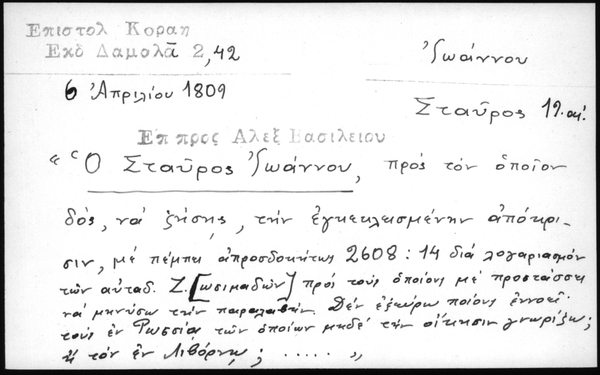 Επιστολ Κοραη
Εκδ Δαμαλᾶ 2,42
Ἰωάννου
6 Ἀπριλίου 1809
Σταῦρος 19. αἰ.
Επ προς Αλεξ Βασιλειου
"Ὁ Σταῦρος Ἰωάννου, πρὸς τὸν ὁποῖον
δός, νὰ ζήσῃς, τὴν ἐγκεκλεισμένην ἀπόκρι-
σιν, μὲ πέμπει ἀπροσδοκήτως 2608:14 διὰ λογαριασμὸν
τῶν αὐταδ. Ζ.[ωσιμαδῶν] πρὸς τοὺς ὁποίους μὲ προστάσσει
νὰ μηνύσω τὴν παραλαβήν. Δὲν ἐξεύρω ποίους ἐννοεῖ·
τοὺς ἐν Ρωσσίᾳ τῶν ὁποίων μηδὲ τὴν οἴκησιν γνωρίζω;
ἢ τὸν ἐν Λιβόρνῳ; ..... "